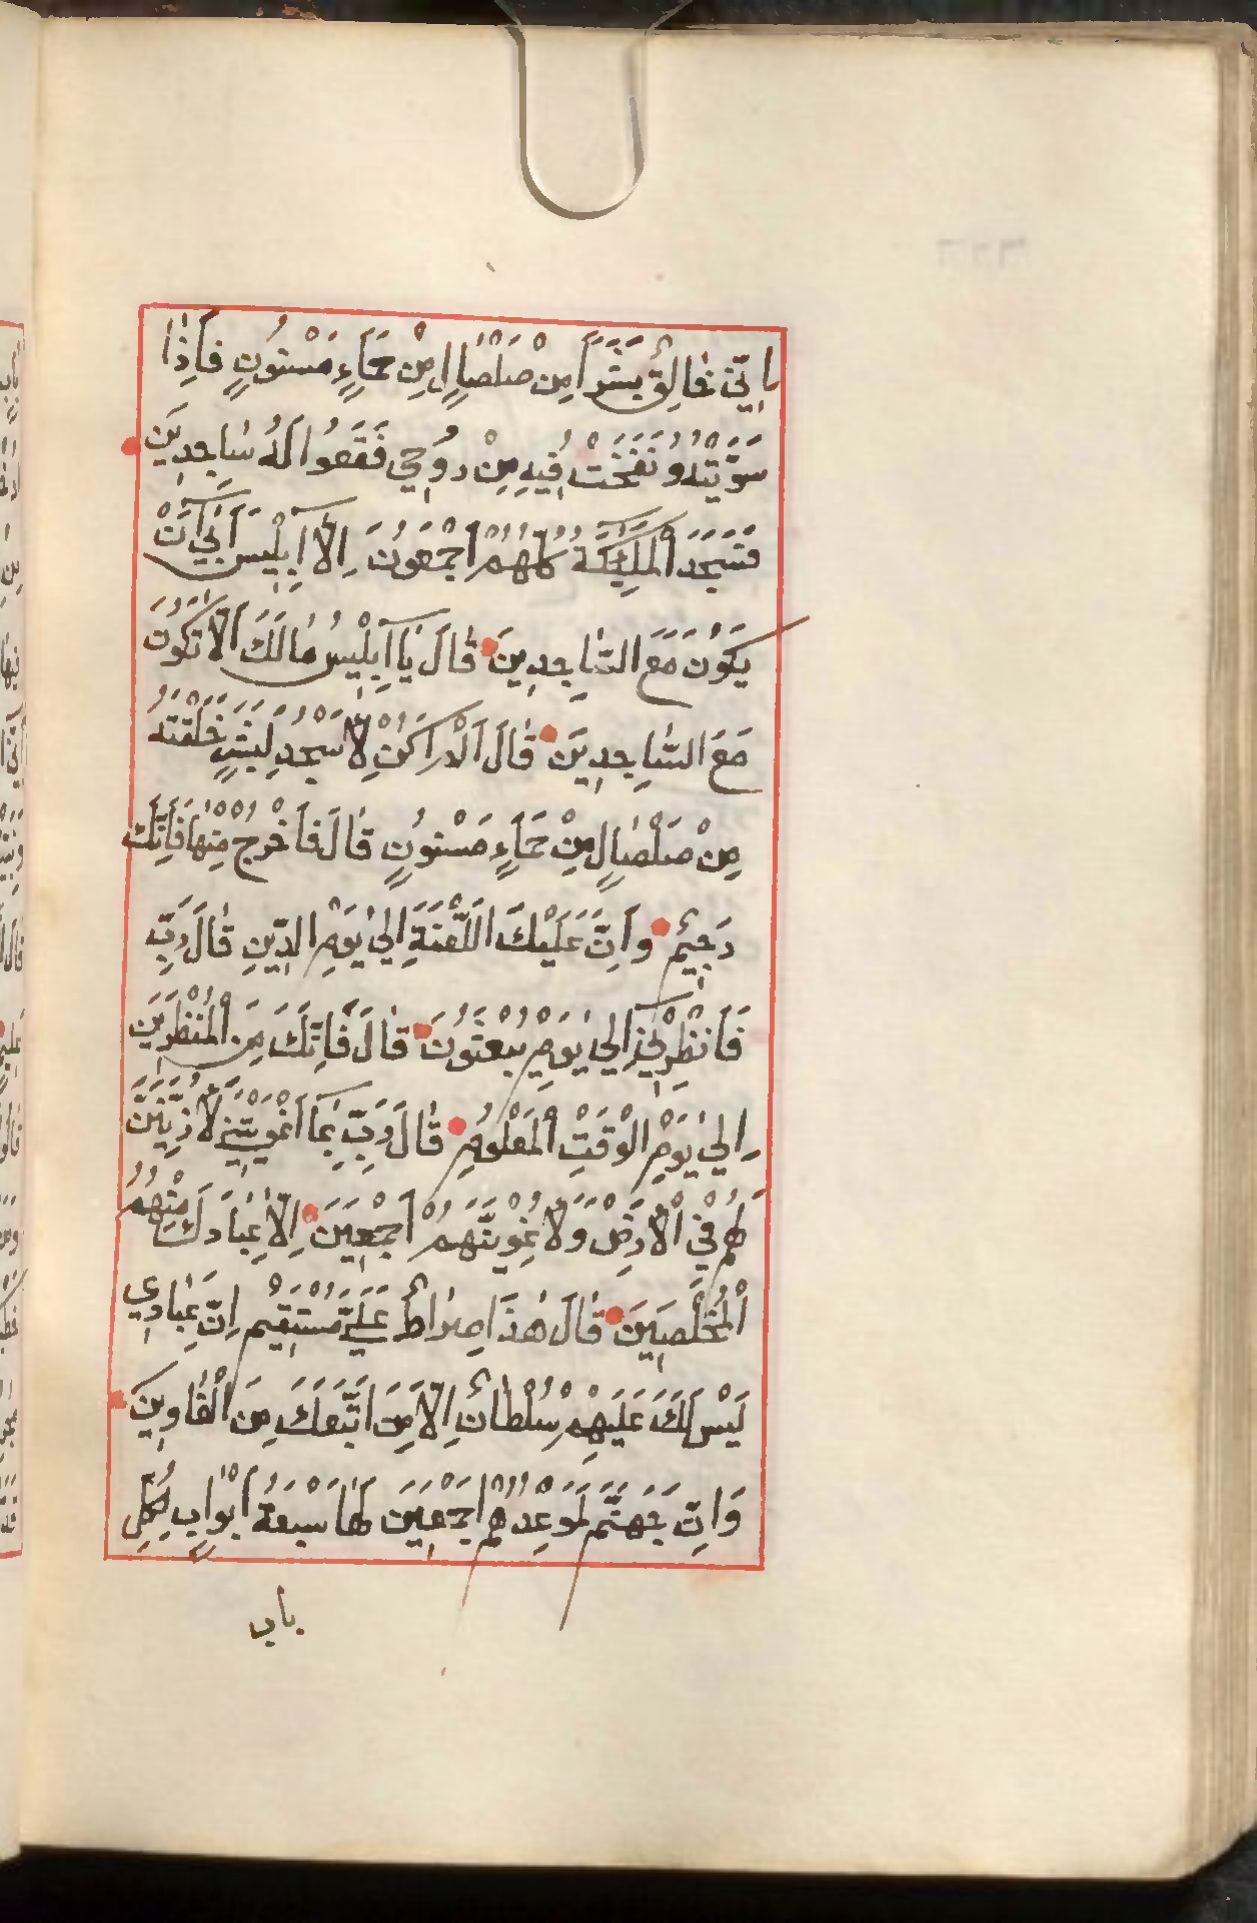 اِنِّي خَالِقٌ بَشَراً مِنْ صَلْصَالٍ مِنْ حَمَاءٍ مَسْنُونٍ فَاِذَا
سَوَّيْتُهُ وَنَفَخْتُ فِيهِ مِنْ رُوحِي فَقَعُوا لَهُ سَاجِدِينَ
فَسَجَدَ الْمَلٰئِكَةُ كُلُّهُمْ اَجْمَعُونَ اِلَّا اِبْلِيسَ اَبٰي اَنْ
يَكُونَ مَعَ السَّاجِدِينَ قَالَ يَا اِبْلِيسُ مَالَكَ اَلَّا تَكُونَ
مَعَ السَّاجِدِينَ قَالَ لَمْ اَكُنْ لِاَسْجُدَ لِبَشَرٍ خَلَقْتَهُ
مِنْ صَلْصَالٍ مِنْ حَمَاءٍ مَسْنُونٍ قَالَ فَاخْرُجْ مِنْهَا فَاِنَّكَ
رَجِيمٌ وَاِنَّ عَلَيْكَ اللَّعْنَةَ اِلٰي يَوْمِ الدِّينِ قَالَ رَبِّ
فَاَنْظِرْنِي اِلٰي يَوْمِ يُبْعَثُونَ قَالَ فَاِنَّكَ مِنَ الْمُنْظَرِينَ
اِلٰي يَوْمِ الْوَقْتِ الْمَعْلُومِ قَالَ رَبِّ بِمَا اَغْوَيْتَنِي لَاُزَيِّنَنَّ
لَهُمْ فِي الْاَرْضِ وَلَاُغْوِيَنَّهُمْ اَجْمَعِينَ اِلَّا عِبَادَكَ مِنْهُمُ
الْمُخْلَصِينَ قَالَ هٰذَا صِرَاطٌ عَلَيَّ مُسْتَقِيمٌ اِنَّ عِبَادِي
لَيْسَ لَكَ عَلَيْهِمْ سُلْطَانٌ اِلَّا مَنِ اتَّبَعَكَ مِنَ الْغَاوِينَ
وَاِنَّ جَهَنَّمَ لَمَوْعِدُهُمْ اَجْمَعِينَ لَهَا سَبْعَةُ اَبْوَابٍ لِكُلِّ
باب